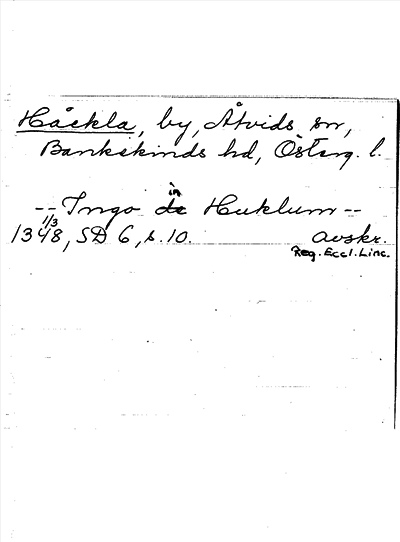 Håckla, by, Åtvids sn,
Bankekinds hd, Österg. l.
-- Ingo in Huklum --
1/3
1348, SD 6, s. 10. avskr.
Reg. Eccl. Linc.